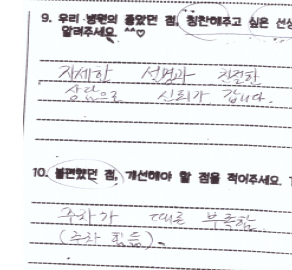 9. 우리 병원의 좋았던 점, 칭찬해주고 싶은 선생
알려주세요. ^^♡
자세한 설명과 친절한
상담으로 신뢰가 갑니다.
10. 불편했던 점, 개선해야 할 점을 적어주세요.
주차가 때론 부족함
(주차 힘듬).